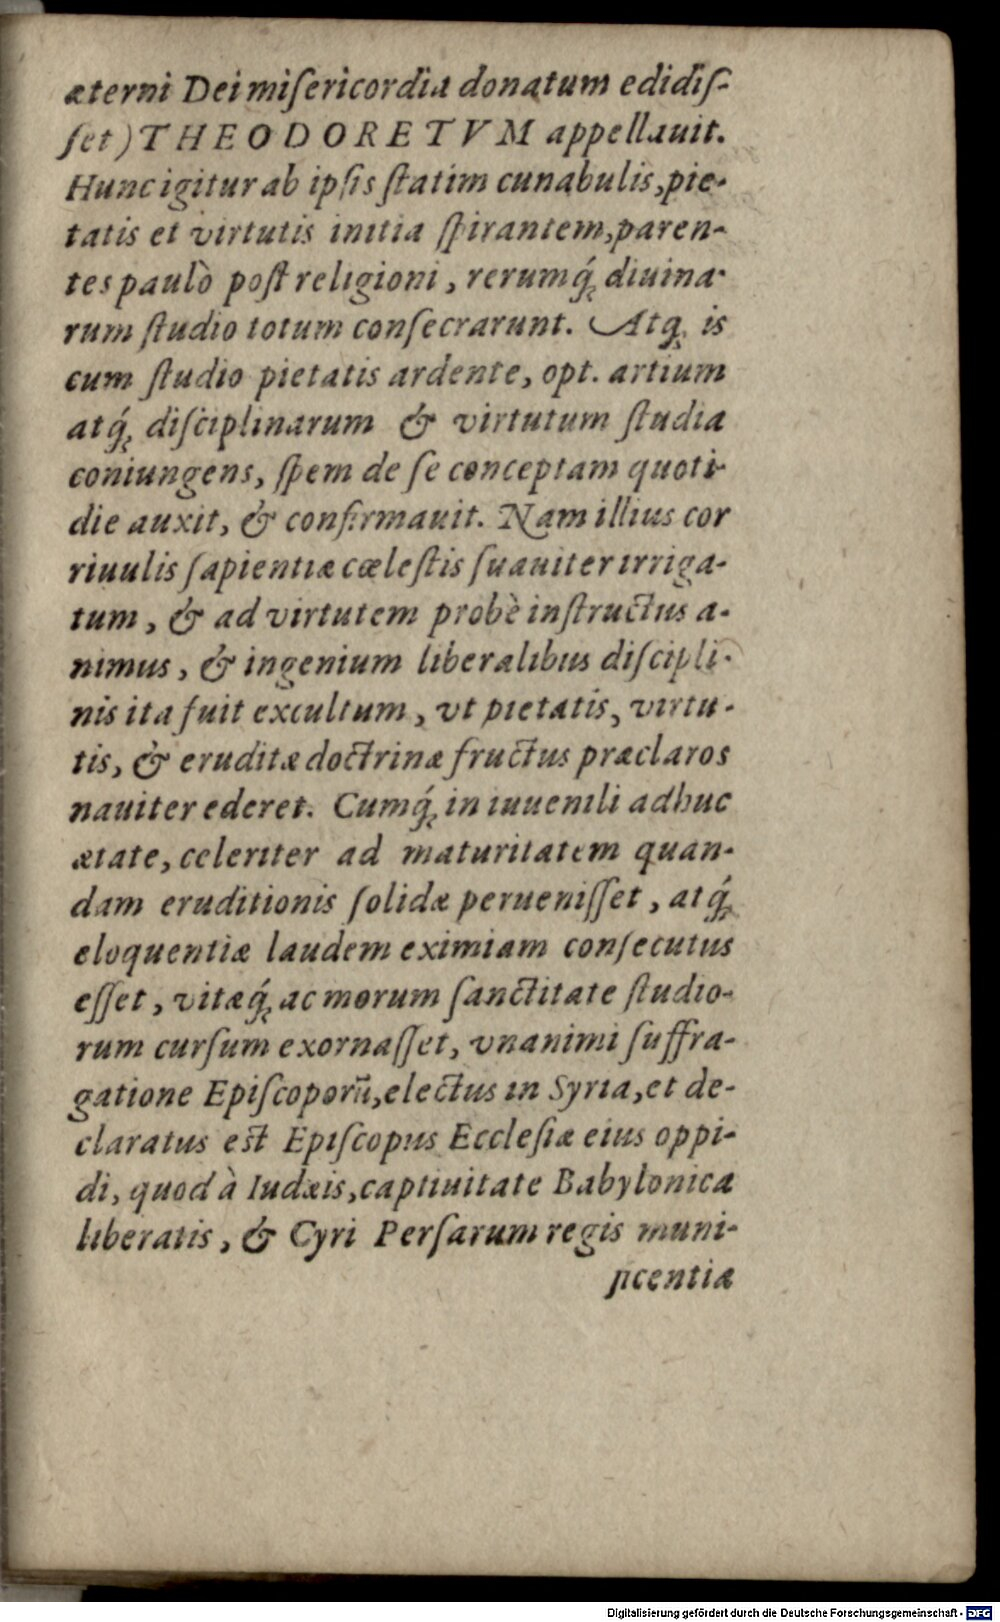 æterni Dei miſericordia donatum edidiſ-
ſet) THEODORETVM appellauit.
Hunc igitur ab ipſis ſtatim cunabulis, pie-
tatis et virtutis initia ſpirantem, paren-
tes paulò poſt religioni, rerumq́; diuina-
rum ſtudio totum conſecrarunt. Atq; is
cum ſtudio pietatis ardente, opt. artium
atq́; diſciplinarum & virtutum ſtudia
coniungens, ſpem de ſe conceptam quoti-
die auxit, & confirmauit. Nam illius cor
riuulis ſapientiæ cœleſtis ſuauiter irriga-
tum, & ad virtutem probè inſtructus a-
nimus, & ingenium liberalibus diſcipli-
nis ita fuit excultum, vt pietatis, virtu-
tis, & eruditæ doctrinæ fructus præclaros
nauiter ederet. Cumq́; in iuuenili adhuc
ætate, celeriter ad maturitatem quan-
dam eruditionis ſolidæ perueniſſet, atq́;
eloquentiæ laudem eximiam conſecutus
eſſet, vitæq́; ac morum ſanctitate ſtudio-
rum curſum exornaſſet, vnanimi ſuffra-
gatione Epiſcoporũ, electus in Syria, et de-
claratus est Epiſcopus Eccleſiæ eius oppi-
di, quod à Iudæis, captiuitate Babylonica
liberatis, & Cyri Perſarum regis muni-
ficentiæ
Digitalisierung gefördert durch die Deutsche Forschungsgemeinschaft - DFG